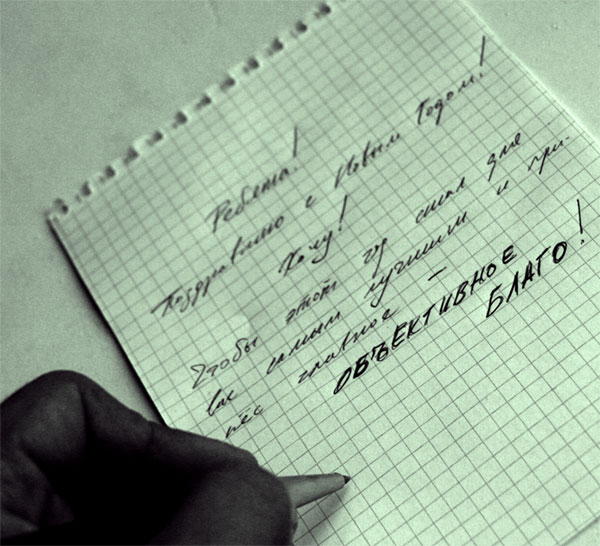 Ребята!
Поздравляю с Новым Годом!
Хочу!
Чтобы этот год стал для
вас самым лучшим и при-
нёс главное –
ОБЪЕКТИВНОЕ
БЛАГО!